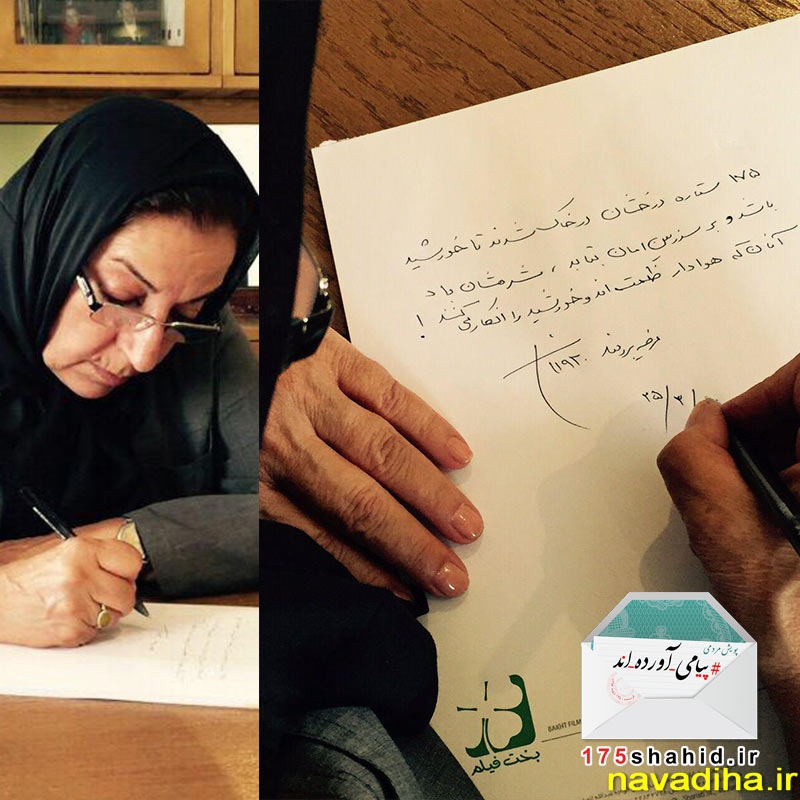 ۱۷۵ ستاره درخشان در خاک شدند تا خورشید
باشد و بر سرزمین امان بتابد ، شرمشان باد
آنان که هوادار ظلمت اند و خورشید را انکار می کنند !
مرضیه برومند
۲۵/۳/
پویش مردمی
#پیامی_آورده_اند
بخت فیلم
BAKHT FILM
175shahid.ir
navadiha.ir